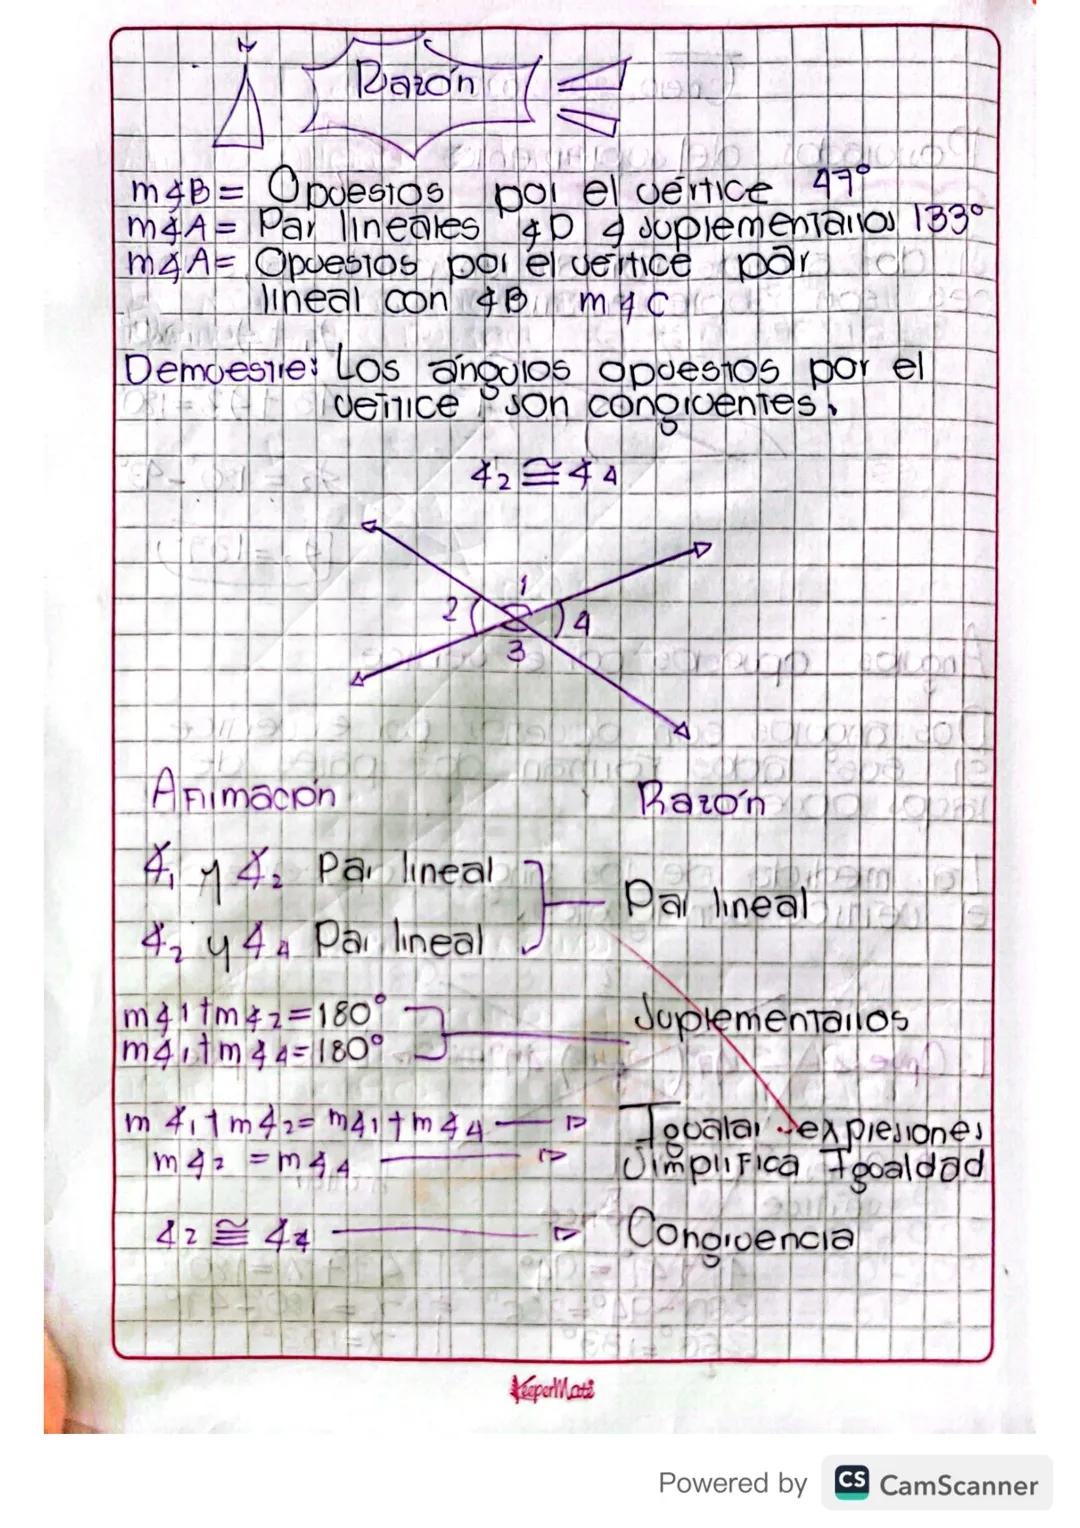 Razón
m∡B= Opuestos por el vértice 47°
m∡A= Par lineales ∡D y suplementarios 133°
m∡A= Opuestos por el vértice par
lineal con ∡B m∡C
Demuestre: Los ángulos opuestos por el
vértice son congruentes.
∡2 ≅ ∡4
1
2
4
3
Afimación Razón
∡1 y ∡2 Par lineal
Par lineal
∡2 y ∡4 Par lineal
m∡1+m∡2=180° Suplementarios
m∡1+m∡4=180°
m∡1+m∡2= m∡1+m∡4 Igualar expresiones
m∡2 =m∡4 Simplifica Igualdad
∡2 ≅ ∡4 Congruencia
KeeperMate
Powered by CS CamScanner